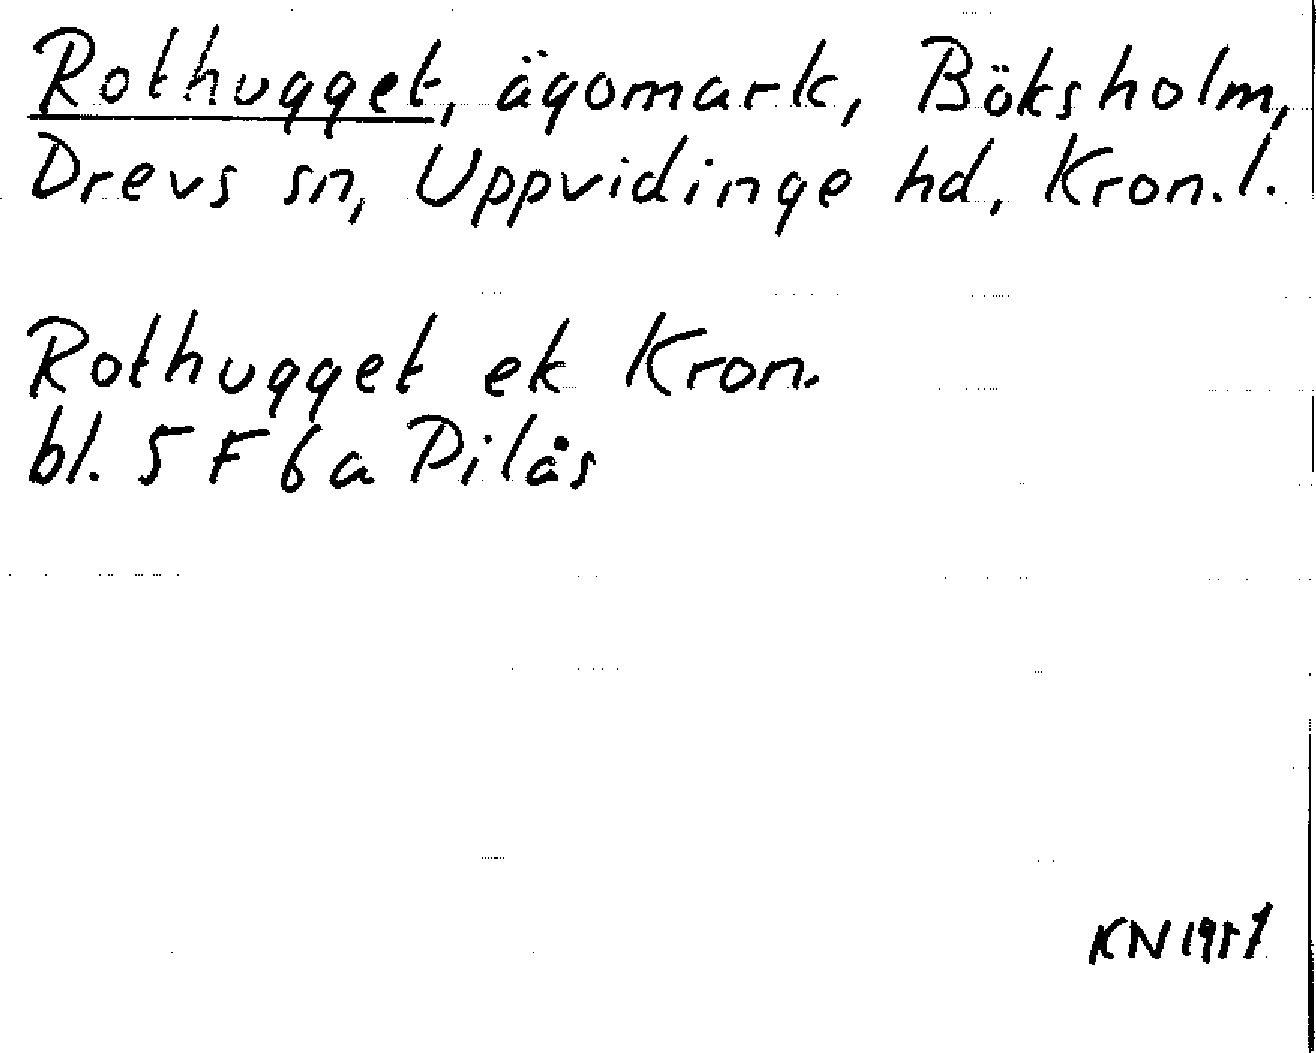 Rothugget, ägomark, Böksholm,
Drevs sn, Uppvidinge hd, Kron. l.
Rothugget ek Kron.
bl. 5 F 6 a Dilås
KN